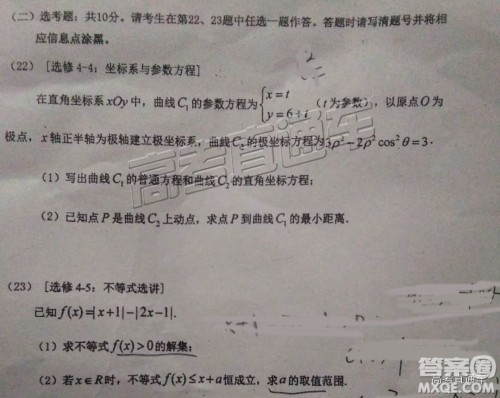 （二）选考题：共10分。请考生在第22、23题中任选一题作答。答题时请写清题号并将相
应信息点涂黑。
（22） [选修4-4：坐标系与参数方程]
在直角坐标系xOy中，曲线C₁的参数方程为{x=t y=6+t （t为参数），以原点O为
极点，x轴正半轴为极轴建立极坐标系，曲线C₂的极坐标方程为3ρ²-2ρ²cos²θ=3.
（1）写出曲线C₁的普通方程和曲线C₂的直角坐标方程；
（2）已知点P是曲线C₂上动点，求点P到曲线C₁的最小距离.
（23） [选修4-5：不等式选讲]
已知f(x)=|x+1|-|2x-1|.
（1）求不等式f(x)>0的解集；
（2）若x∈R时，不等式f(x)≤x+a恒成立，求a的取值范围.
高考直通车
答案圈